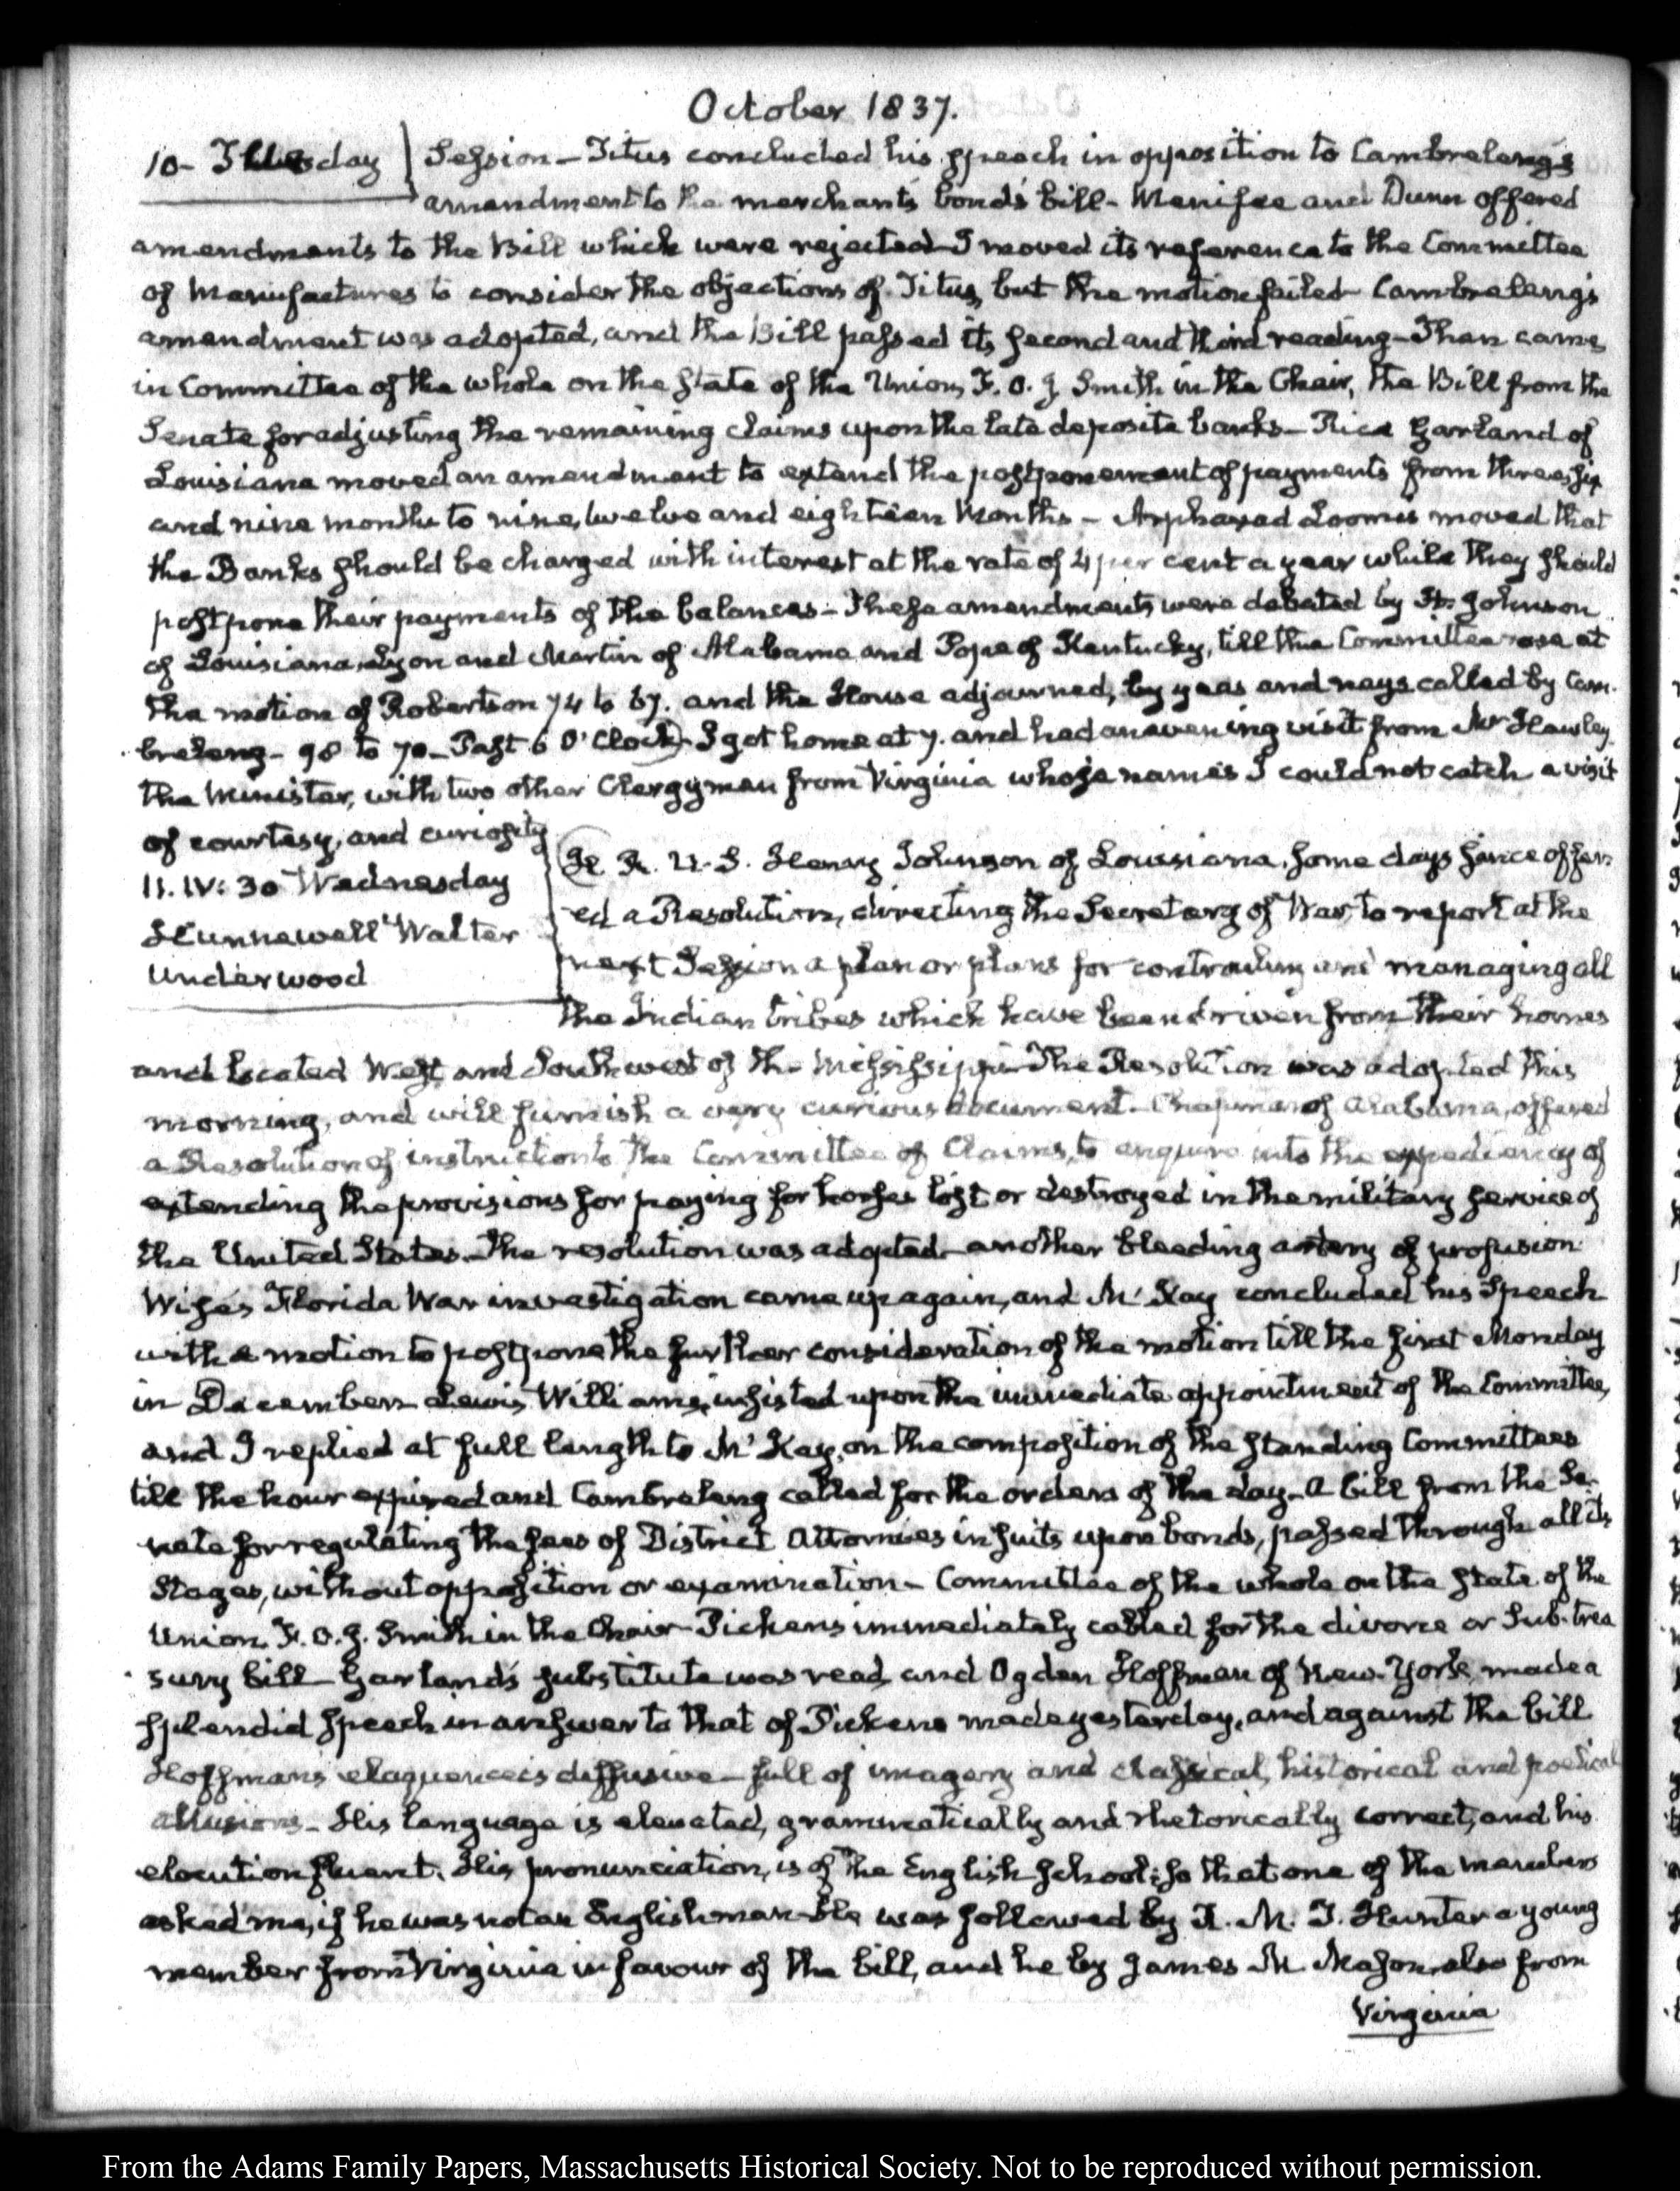 October 1837.
10- Tuesday Session - Titus concluded his speech in opposition to Cambreleng's
amendment to the merchants bonds bill - Menifee and Dunn offered
amendments to the Bill which were rejected - I moved its reference to the Committee
of Manufactures to consider the objections of Titus, but the motion failed - Cambreleng's
amendment was adopted, and the Bill passed its second and third reading - Then came
in Committee of the whole on the State of the Union, F. O. J. Smith in the Chair, the Bill from the
Senate for adjusting the remaining claims upon the late deposite banks - Rice Garland of
Louisiana moved an amendment to extend the postponement of payments from three, six
and nine months to nine, twelve and eighteen Months - Arphaxad Loomis moved that
the Banks should be charged with interest at the rate of 4 per cent a year while they should
postpone their payments of the balances - These amendments were debated by H. Johnson
of Louisiana, Lyon and Martin of Alabama, and Pope of Kentucky, till the Committee rose at
the motion of Robertson 74 to 67. and the House adjourned, by yeas and nays called by Cam-
breleng - 98 to 70 - Past 6 O'Clock - I got home at 7. and had an evening visit from Mr Hawley
the Minister, with two other Clergymen from Virginia whose names I could not catch a visit
of courtesy, and curiosity
11. IV: 30 Wednesday
Hunnewell Walter
Underwood
H. R. U.S. Henry Johnson of Louisiana, some days since offer-
ed a Resolution, directing the Secretary of War, to report at the
next Session a plan or plans for controuling and managing all
the Indian tribes which have been driven from their homes
and located West and South west of the Mississippi - The Resolution was adopted this
morning, and will furnish a very curious document - Chapman of Alabama, offered
a Resolution of instruction to the Committee of Claims, to enquire into the expediency of
extending the provisions for paying for horses lost or destroyed in the military service of
the United States. The resolution was adopted - another bleeding artery of profusion
Wise's Florida War investigation came up again, and McKay concluded his Speech
with a motion to postpone the further consideration of the motion till the first Monday
in December. Lewis Williams, insisted upon the immediate appointment of the Committee,
and I replied at full length to McKay, on the composition of the standing Committees
till the hour expired and Cambreleng called for the orders of the day - A bill from the Se-
nate for regulating the fees of District Attornies in suits upon bonds, passed through all its
Stages, without opposition or examination - Committee of the whole on the State of the
Union. F. O. J. Smith in the Chair - Pickens immediately called for the divorce or Sub-trea
sury bill - Garland's substitute was read, and Ogden Hoffman of New-York, made a
splendid speech in answer to that of Pickens made yesterday, and against the bill
Hoffman's eloquence is diffusive - full of imagery and classical, historical and poetical
allusions - His language is elevated, grammatically and rhetorically correct, and his
elocution fluent. His pronunciation, is of the English school; so that one of the members
asked me, if he was not an Englishman - He was followed by R. M. T. Hunter a young
member from Virginia in favour of the bill, and he by James M Mason, also from
Virginia
From the Adams Family Papers, Massachusetts Historical Society. Not to be reproduced without permission.